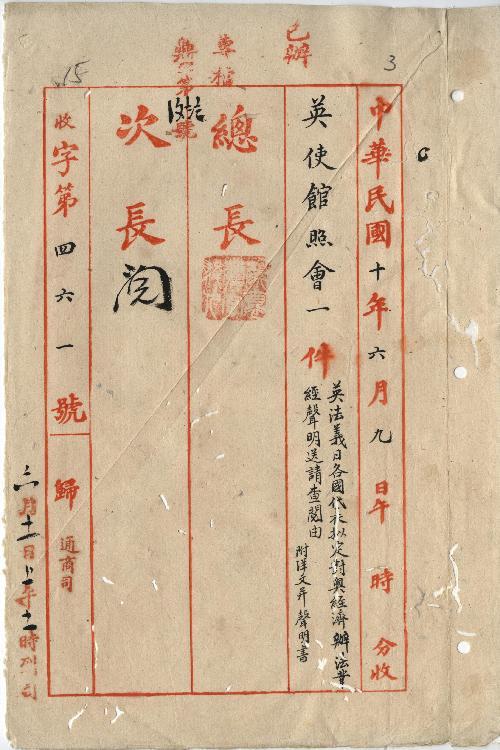 3
已辦
中華民國十年六月九日午 時 分收
英使館照會一件
英法義日各國代表擬定對奧經濟辦法業
經聲明送請查閱由
附洋文并聲明書
總長
次長
閱
收字第四六一號
歸通商司
六月十一日上午十一時列司
15